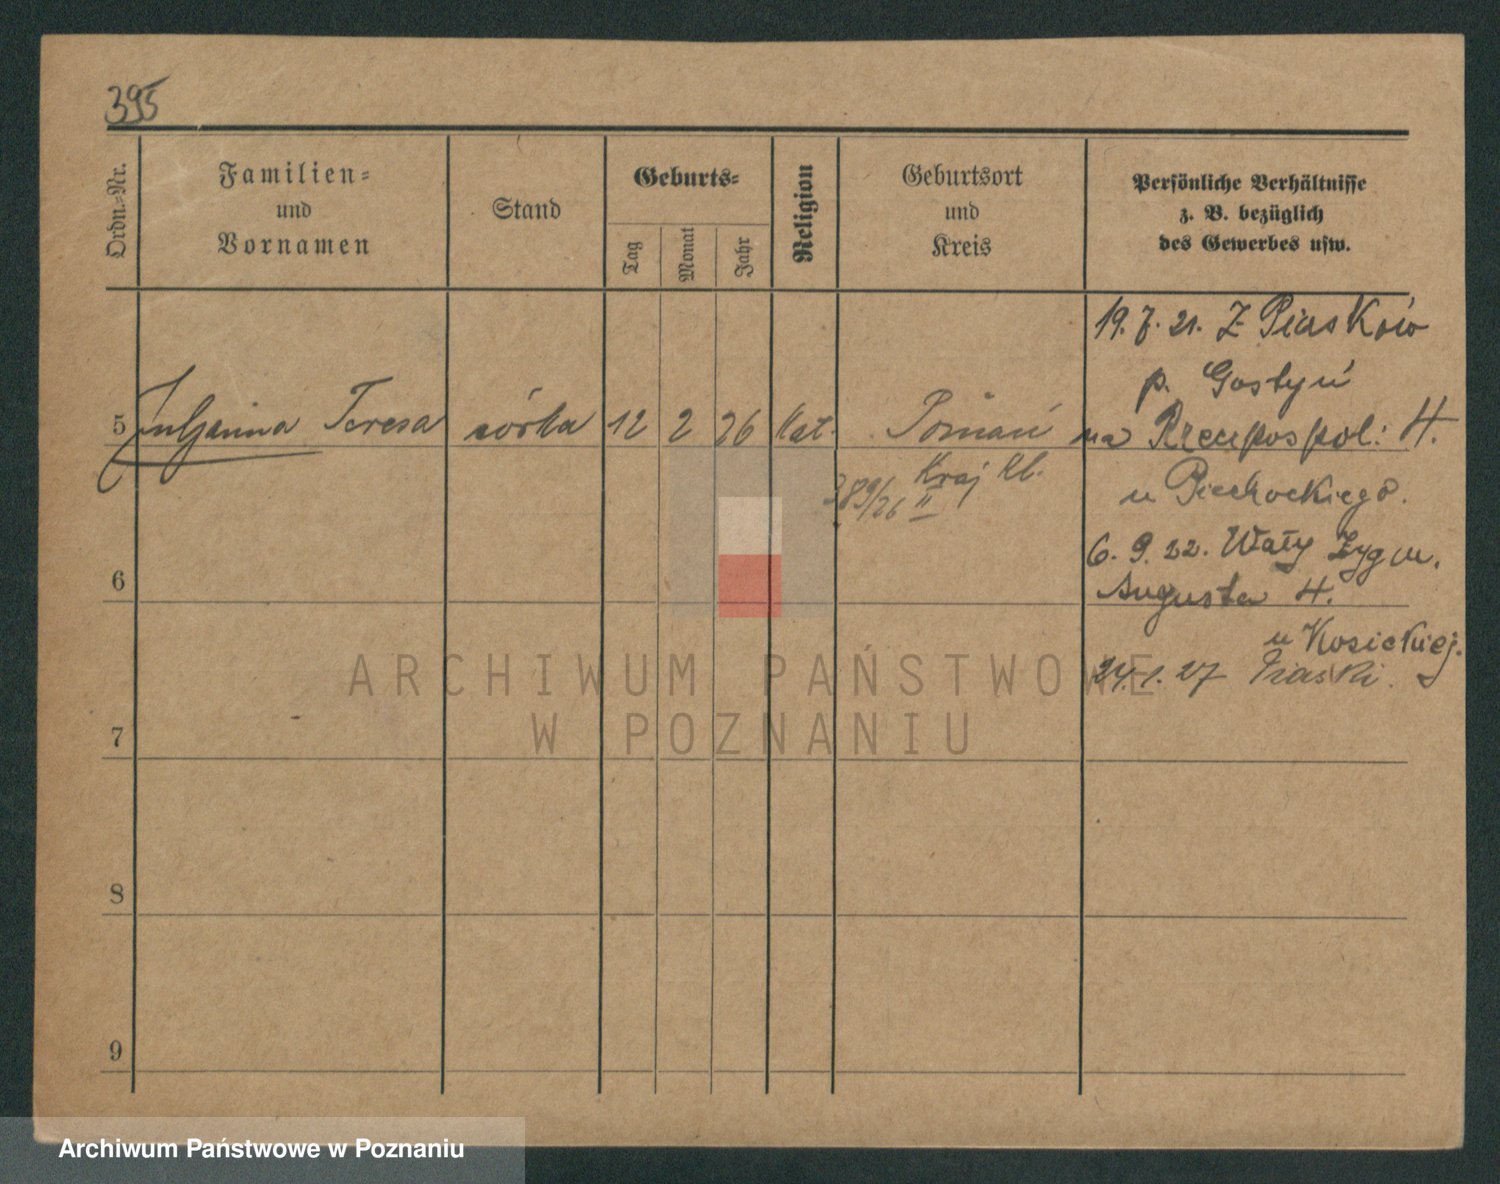 395
Ordn.-Nr.
Familien-
und
Vornamen
Stand
Geburts-
Tag
Monat
Jahr
Religion
Geburtsort
und
Kreis
Persönliche Verhältnisse
z. B. bezüglich
des Gewerbes usw.
19. 7. 21. Z Piasków
p. Gostyń
5 Juljanna Teresa córka 12 2 26 kat. Poznań na Rzeczpospol: 4.
389/26 II Kraj Kl.
u Piechockiego.
6. 9. 22. Wały Zygm.
6
Augusta 4.
u Kosickiej.
24. 1. 27 Piaski.
ARCHIWUM PAŃSTWOWE
W POZNANIU
7
8
9
Archiwum Państwowe w Poznaniu